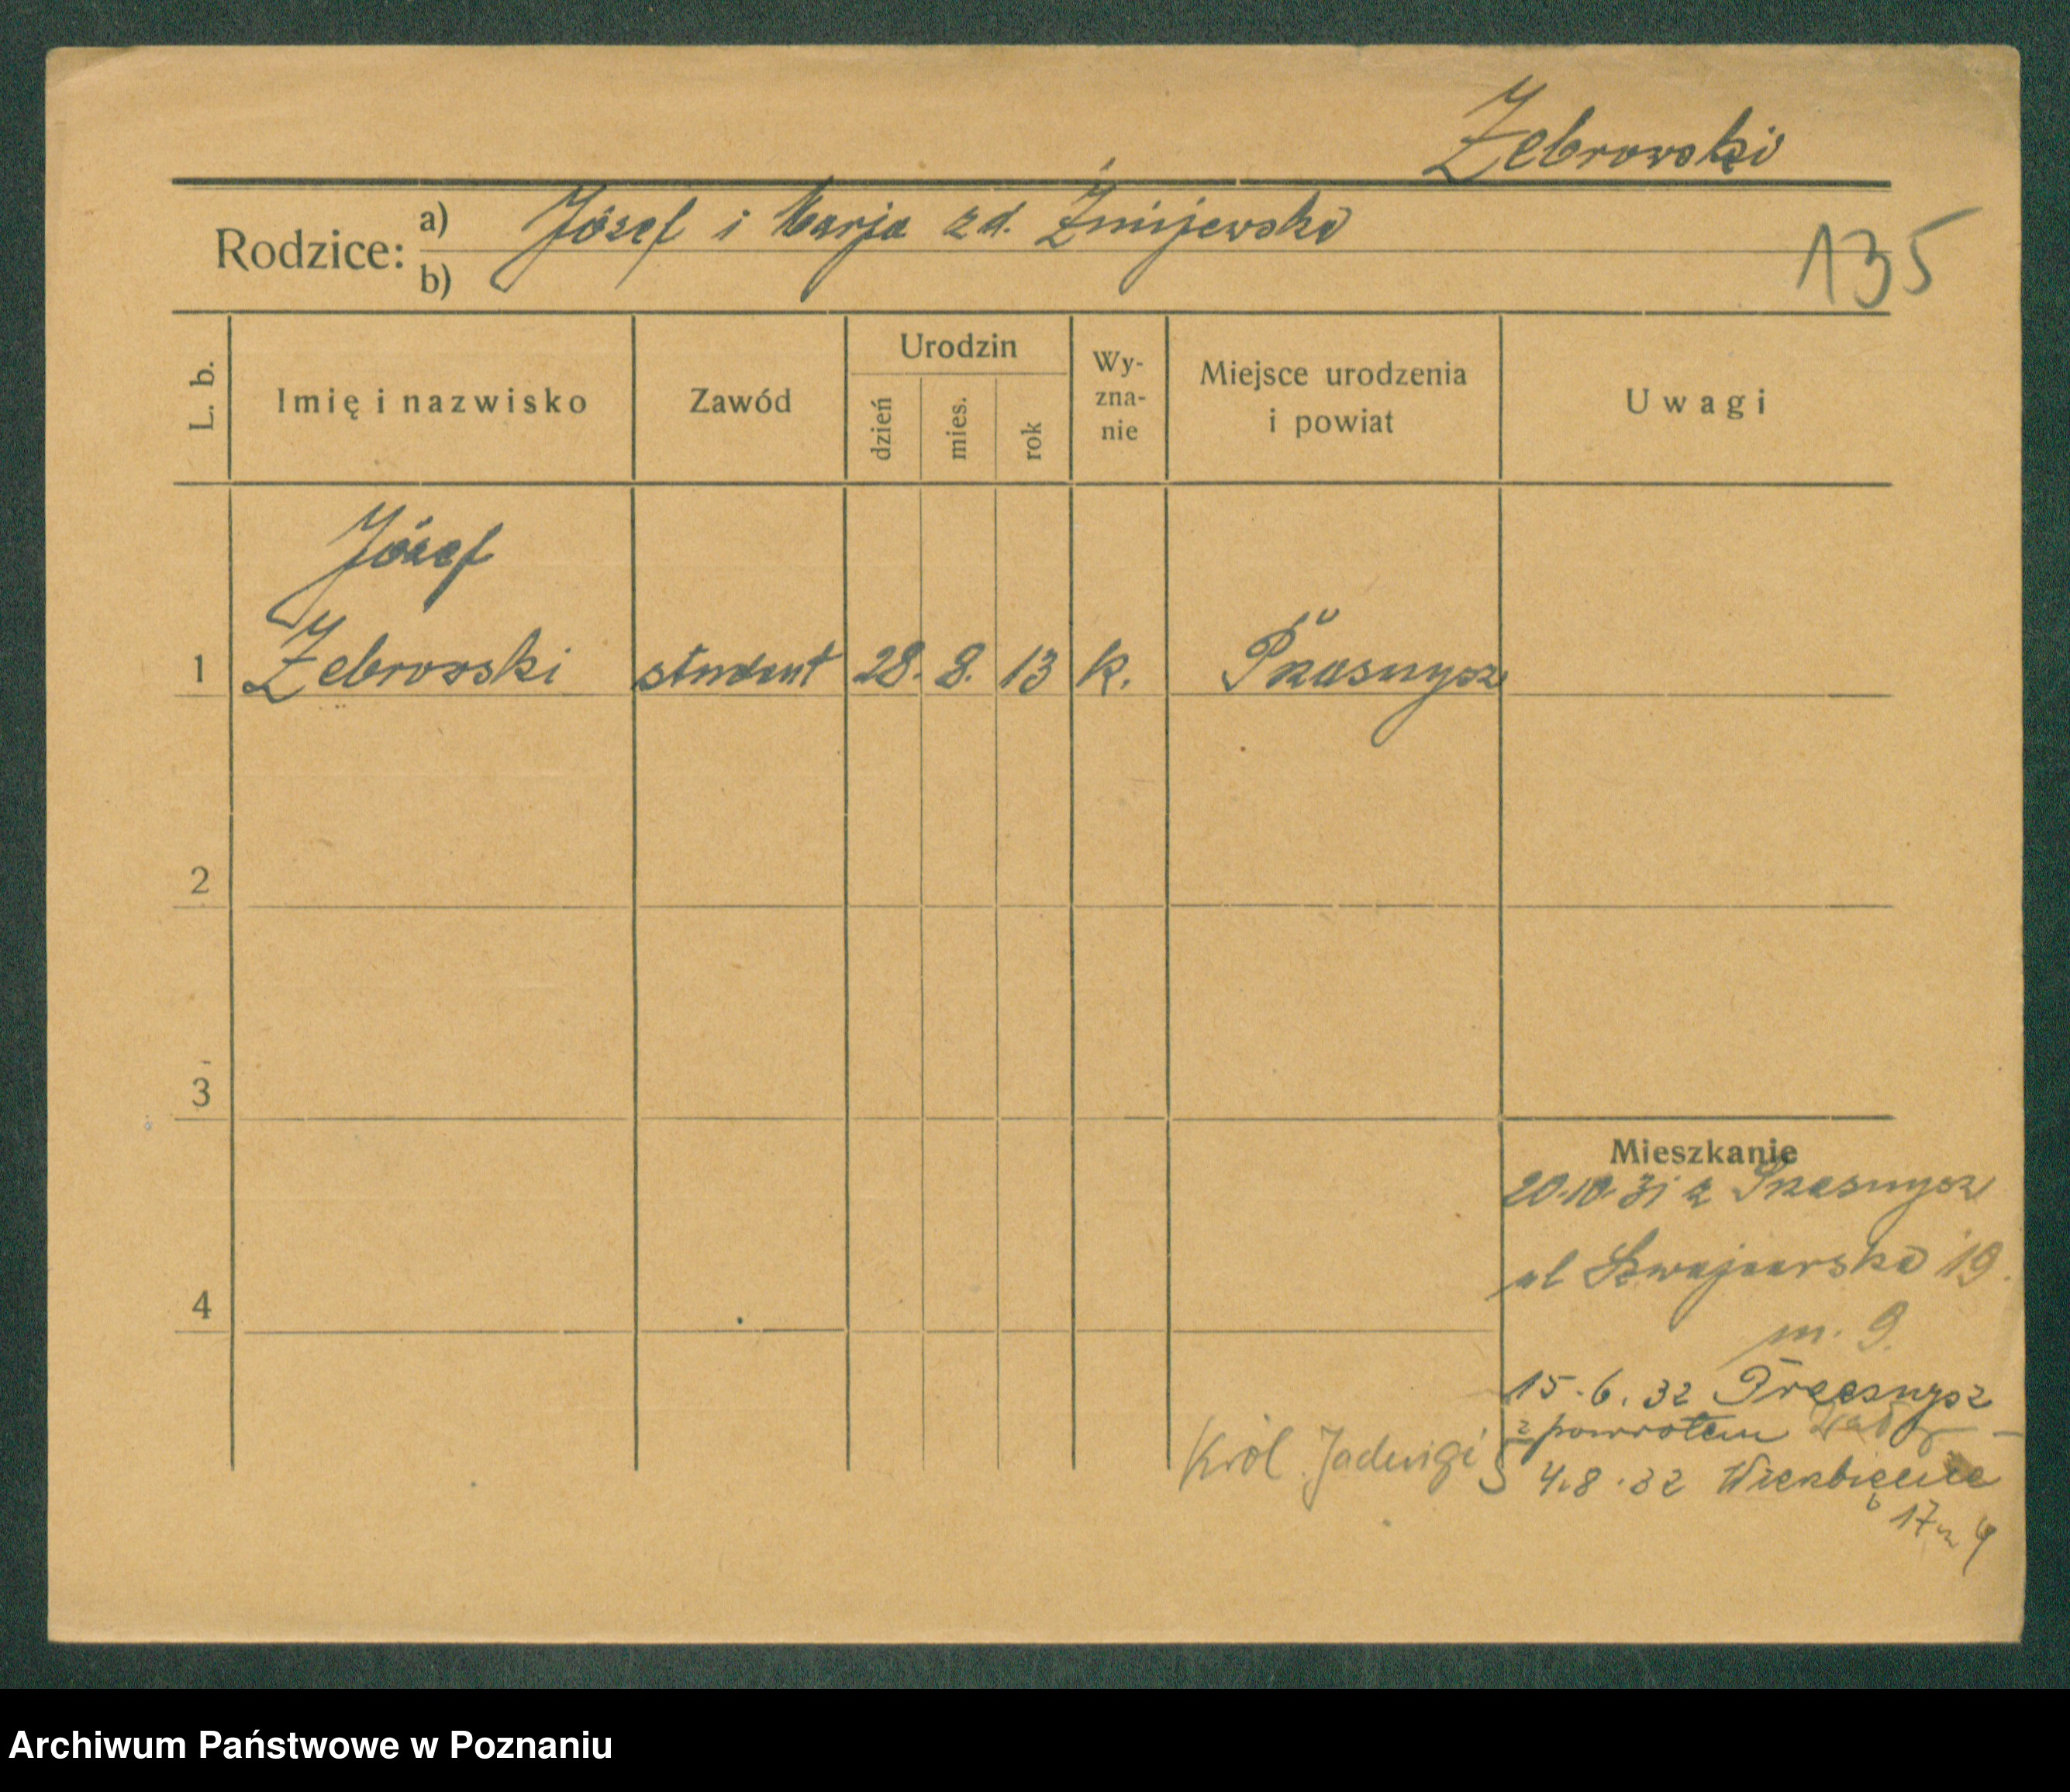 Żebrowski
Rodzice: a) Józef i Marja zd. Żmijewska
b)
135
L. b.
Imię i nazwisko
Zawód
Urodzin
dzień
mies.
rok
Wy-
zna-
nie
Miejsce urodzenia
i powiat
Uwagi
Józef
1 Żebrowski student 28. 8. 13 k. Przasnysz
2
3
4
Mieszkanie
20.10.31 z Przasnysz
ul Szwajcarska 19.
m. 9.
15.6.32 Przasnysz
z powrotem
Król. Jadwigi 5 4.8.32 Wierzbięcice
17 m
Archiwum Państwowe w Poznaniu